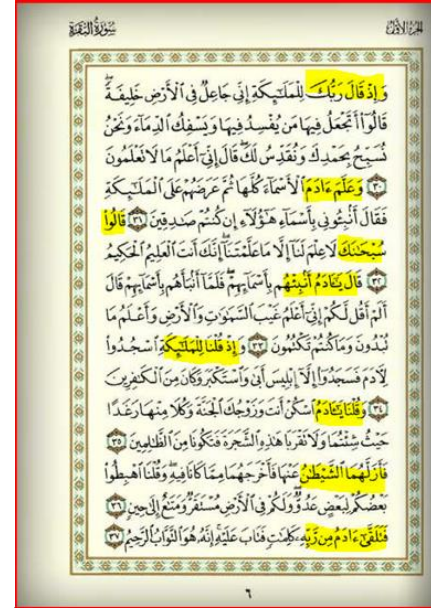 سُورَةُ البَقَرَةِ الجزءُ الأوّل
وَإِذْ قَالَ رَبُّكَ لِلْمَلَٰٓئِكَةِ إِنِّي جَاعِلٌ فِي ٱلْأَرْضِ خَلِيفَةً ۖ
قَالُوٓا۟ أَتَجْعَلُ فِيهَا مَن يُفْسِدُ فِيهَا وَيَسْفِكُ ٱلدِّمَآءَ وَنَحْنُ
نُسَبِّحُ بِحَمْدِكَ وَنُقَدِّسُ لَكَ ۖ قَالَ إِنِّيٓ أَعْلَمُ مَا لَا تَعْلَمُونَ
٣٠ وَعَلَّمَ ءَادَمَ ٱلْأَسْمَآءَ كُلَّهَا ثُمَّ عَرَضَهُمْ عَلَى ٱلْمَلَٰٓئِكَةِ
فَقَالَ أَنۢبِـُٔونِي بِأَسْمَآءِ هَٰٓؤُلَآءِ إِن كُنتُمْ صَٰدِقِينَ ٣١ قَالُوا۟
سُبْحَٰنَكَ لَا عِلْمَ لَنَآ إِلَّا مَا عَلَّمْتَنَآ ۖ إِنَّكَ أَنتَ ٱلْعَلِيمُ ٱلْحَكِيمُ
٣٢ قَالَ يَٰٓـَٔادَمُ أَنۢبِئْهُم بِأَسْمَآئِهِمْ ۖ فَلَمَّآ أَنۢبَأَهُم بِأَسْمَآئِهِمْ قَالَ
أَلَمْ أَقُل لَّكُمْ إِنِّيٓ أَعْلَمُ غَيْبَ ٱلسَّمَٰوَٰتِ وَٱلْأَرْضِ وَأَعْلَمُ مَا
تُبْدُونَ وَمَا كُنتُمْ تَكْتُمُونَ ٣٣ وَإِذْ قُلْنَا لِلْمَلَٰٓئِكَةِ ٱسْجُدُوا۟
لِـَٔادَمَ فَسَجَدُوٓا۟ إِلَّآ إِبْلِيسَ أَبَىٰ وَٱسْتَكْبَرَ وَكَانَ مِنَ ٱلْكَٰفِرِينَ
٣٤ وَقُلْنَا يَٰٓـَٔادَمُ ٱسْكُنْ أَنتَ وَزَوْجُكَ ٱلْجَنَّةَ وَكُلَا مِنْهَا رَغَدًا
حَيْثُ شِئْتُمَا وَلَا تَقْرَبَا هَٰذِهِ ٱلشَّجَرَةَ فَتَكُونَا مِنَ ٱلظَّٰلِمِينَ ٣٥
فَأَزَلَّهُمَا ٱلشَّيْطَٰنُ عَنْهَا فَأَخْرَجَهُمَا مِمَّا كَانَا فِيهِ ۖ وَقُلْنَا ٱهْبِطُوا۟
بَعْضُكُمْ لِبَعْضٍ عَدُوٌّ ۖ وَلَكُمْ فِي ٱلْأَرْضِ مُسْتَقَرٌّ وَمَتَٰعٌ إِلَىٰ حِينٍ ٣٦
فَتَلَقَّىٰٓ ءَادَمُ مِن رَّبِّهِۦ كَلِمَٰتٍ فَتَابَ عَلَيْهِ ۚ إِنَّهُۥ هُوَ ٱلتَّوَّابُ ٱلرَّحِيمُ ٣٧
٦